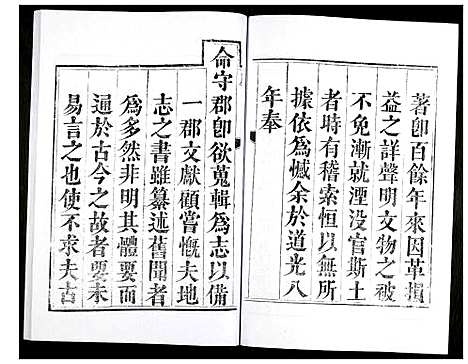 著卽百餘年來因革損
益之詳聲明文物之被
不免漸就湮没官斯土
者時有稽索恒以無所
據依為憾余於道光八
年奉
命守郡卽欲蒐輯為志以備
一郡文獻顧嘗慨夫地
志之書雖纂述舊聞者
為多然非明其體要而
通於古今之故者要未
易言之也使不求夫古